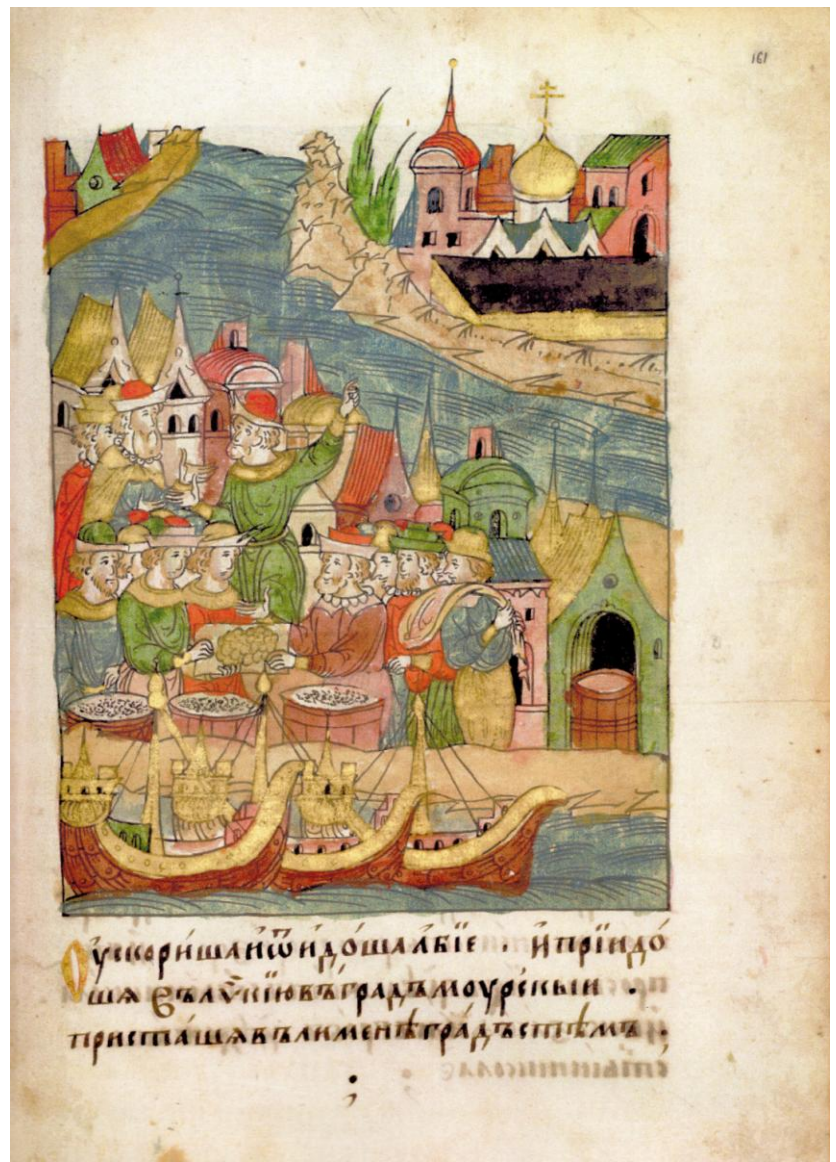 161
Оускори́ша и ѿидо́ша абїе . и҆ прїидо́
шѧ въ лѵкїю въ гра́дъ моурскыи .
приста́шѧ въ лименѣ гра́дъстѣмъ .